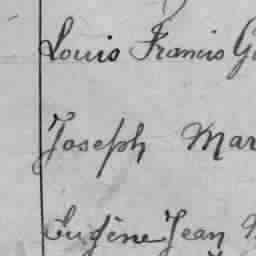 Louis Francis G
Joseph Mar
Eugène Jean